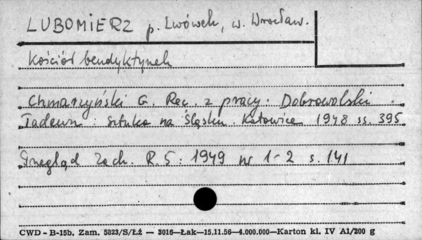 LUBOMIERZ p. Lwówek, w. Wrocław.
Kościół benedyktynek
Chmarzyński G. Rec. z pracy: Dobrowolski
Tadeusz: Sztuka na Śląsku. Katowice 1948 ss. 395
Przegląd Zach. R. 5: 1949 nr 1-2 s. 141
CWD - B-15b. Zam. 5823/S/ŁŻ — 3016—Łak—15.11.56—4.000.000—Karton kl. IV A1/200 g